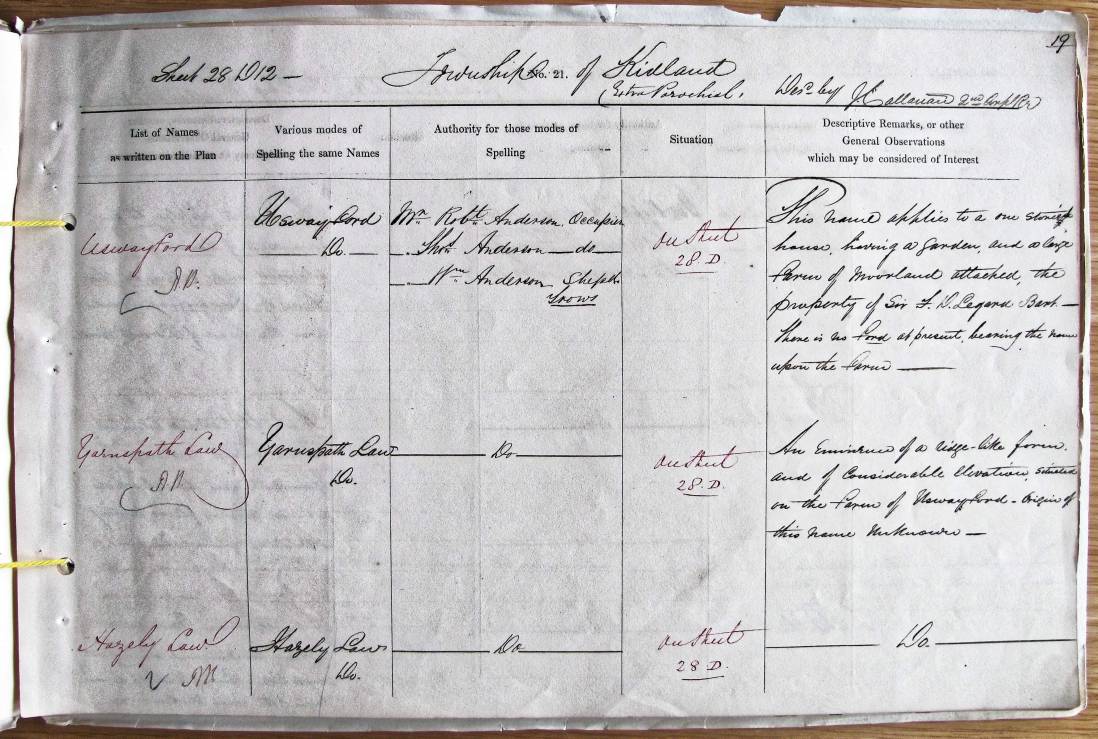 19
Sheet 28 D 12 — Township No. 21. of Kidland Des.d by J. Callanan 2nd Corpl RE
Extra Parochial.
List of Names
as written on the Plan
Various modes of
Spelling the same Names
Authority for those modes of
Spelling
Situation
Descriptive Remarks, or other
General Observations
which may be considered of Interest
Uswayford
Uswayford
Do.
Mr. Robt. Anderson, Occupier
Thos. Anderson do
Wm. Anderson Sheph.
Trows
on Sheet
28. D.
This name applies to a one storied
house, having a Garden, and a large
Farm of Moorland attached, the
property of Sir F. D. Legard Bart —
There is no Ford at present, bearing the name
upon the Farm —
Yarnspath Law
Yarnspath Law
Do.
Do
on Sheet
28. D.
An Eminence of a ridge-like form,
and of Considerable Elevation, situated
on the Farm of Uswayford - Origin of
this name Unknown —
Hazely Law
Hazely Law
Do.
Do
on Sheet
28 D.
Do.